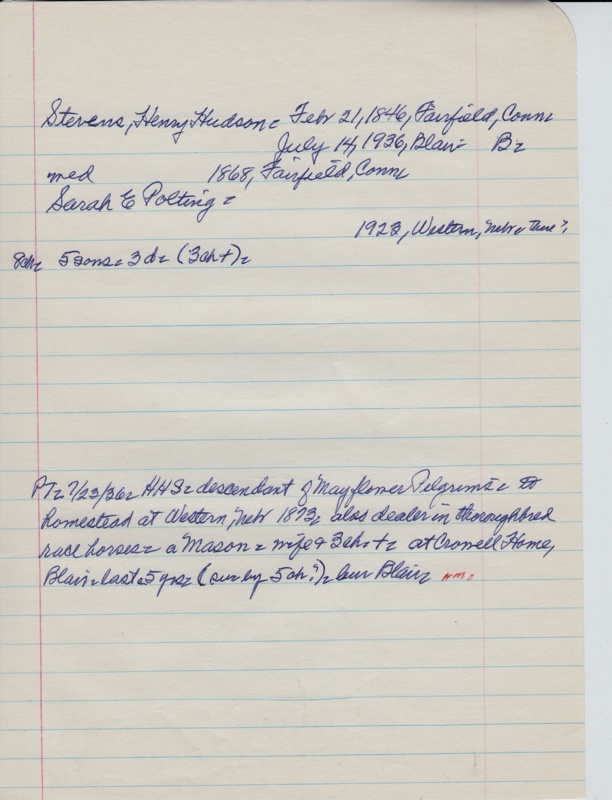 Stevens, Henry Hudson = Feb 21, 1846, Fairfield, Conn
July 14, 1936, Blair = B =
med 1868, Fairfield, Conn
Sarah E Polting =
1923, Western, Nebr = there?,
8ch = 5 sons = 3 d = (3ch +) =
PT = 7/23/36 = HHS = descendant of Mayflower Pilgrims = to
homestead at Western, Nebr 1873, also dealer in thoroughbred
race horses = a Mason = wife & 3ch = + = at Crowell Home,
Blair = last 5 yrs = (sur by 5 ch?) = bur Blair =